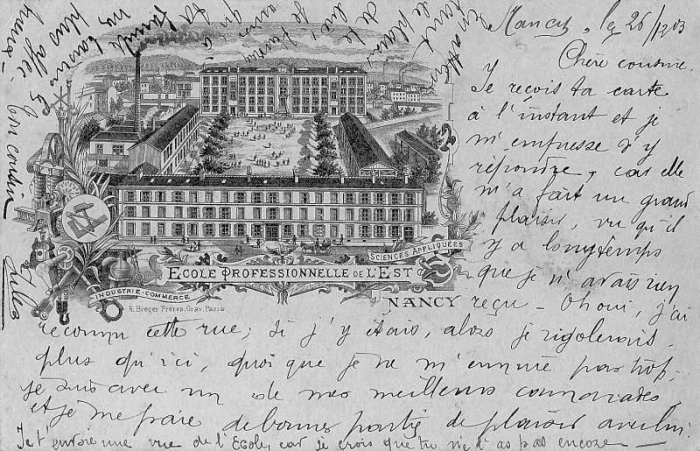 Nancy, le 26/12 03
Chère cousine.
Je reçois ta carte
à l'instant et je
m'empresse d'y
répondre, car elle
m'a fait un grand
plaisir, vu qu'il
y a longtemps
que je n'avais rien
reçu - Oh oui, j'ai
reconnu cette rue; si j'y étais, alors je rigolerais
plus qu'ici, quoi que je ne m'ennuie pas trop.
je suis avec un de mes meilleurs camarades,
et je me paie de bonnes partie de plaisir avec lui
Je t'envoie une vue de l'Ecole, car je crois que tu ne l'as pas encore
ton cousin
Jules
ECOLE PROFESSIONNELLE DE L'EST
SCIENCES APPLIQUÉES
INDUSTRIE-COMMERCE
NANCY
R. Bieger Frères, Grav. Paris